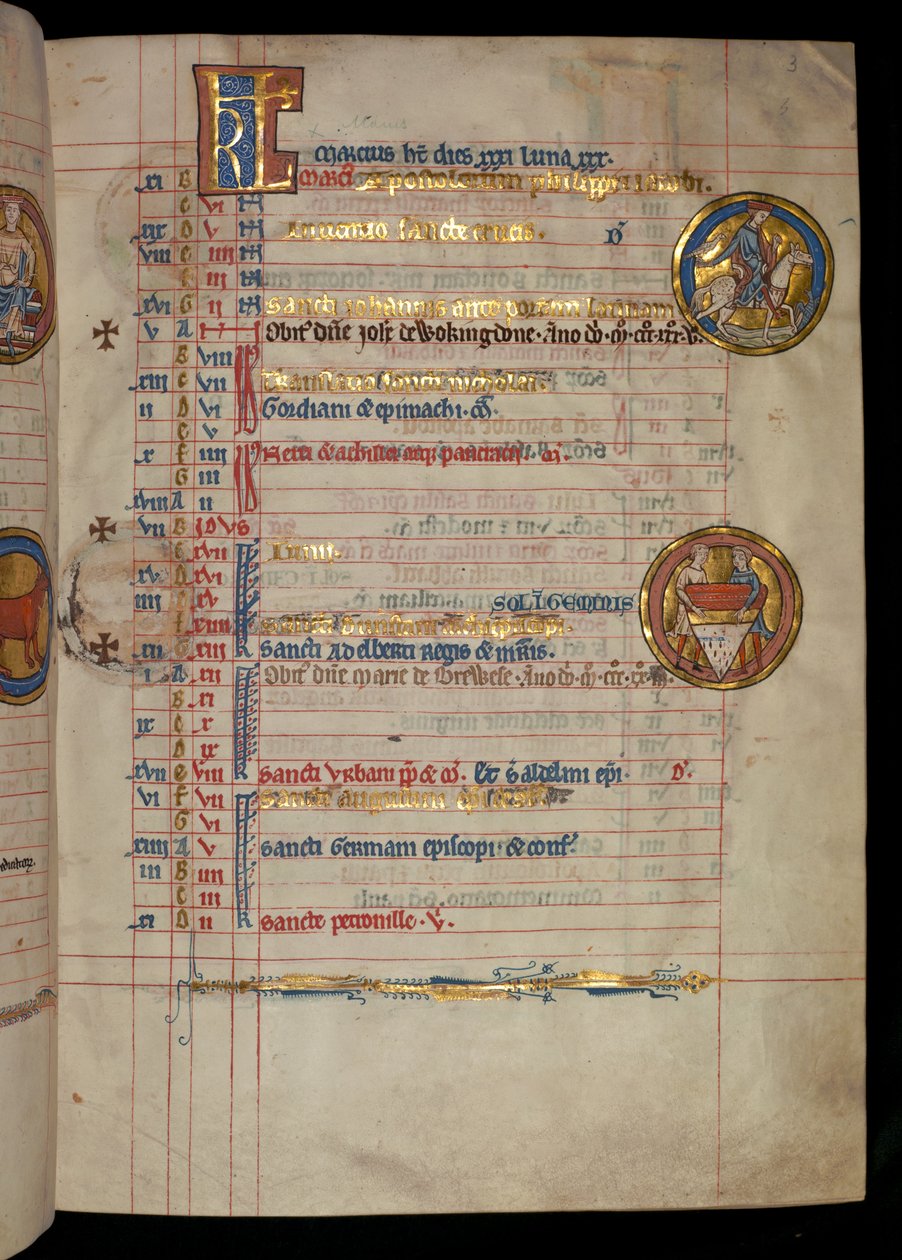 3
KL
Marcius ht dies xxxi luna xxx.
xi B Marcii Apostolorum philippi & iacobi.
C vi N
xix D v N Inuentio sancte crucis. D
viii E iiii N
F iii N
xvi G ii N Sancti iohannis ante portam latinam
v A Obit dne Joħe de Wokingdone. Ano dō
B viii
xiii C vii Translatio sancti nicholai.
ii D vi Gordiani & epimachi.
E v
x F iiii Nerei & achillei atq; pancracii.
G iii
xviii A ii
vii B IDVS
C xvii Iunii.
xv D xvi
iiii E xv SOL I GEMINIS
F xiiii Sancti Dunstani
xii G xiii K Sancti Adelberti Regis & mris.
i A xii Obit dne Marie de Brewese. Ano dō
B xi
ix C x
D ix
xvii E viii K Sancti Vrbani pp & m. Et s aldelmi epi. D.
vi F vii Sancti augustini
G vi
xiiii A v Sancti Germani episcopi & conf.
iii B iiii
C iii
xi D ii K Sancte petronille. V.